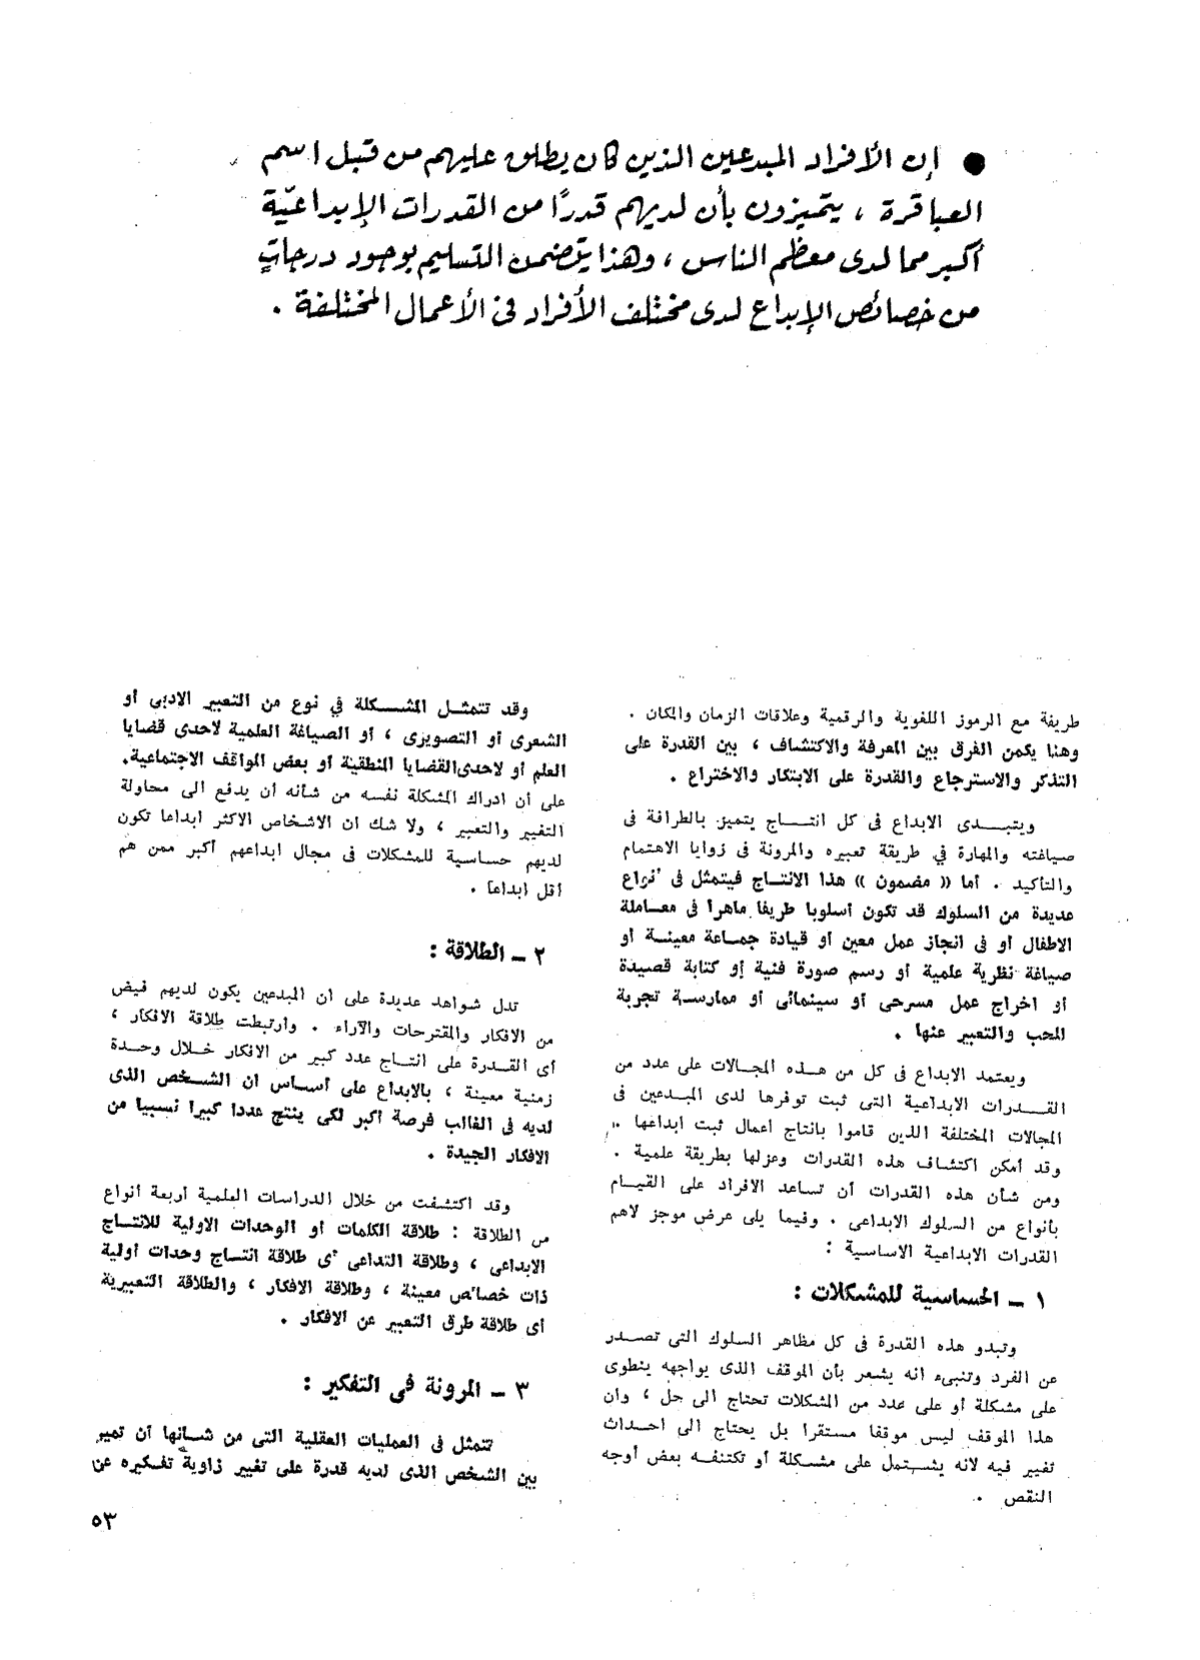 ● إن الأفراد المبدعين الذين كان يطلق عليهم من قبل اسم
العباقرة ، يتميزون بأن لديهم قدرًا من القدرات الإبداعيّة
أكبر مما لدى معظم الناس ، وهذا يتضمن التسليم بوجود درجاتٍ
من خصائص الإبداع لدى مختلف الأفراد في الأعمال المختلفة .
طريفة مع الرموز اللغوية والرقمية وعلاقات الزمان والمكان .
وهنا يكمن الفرق بين المعرفة والاكتشاف ، بين القدرة على
التذكر والاسترجاع والقدرة على الابتكار والاختراع .
ويتبـــدى الابداع فى كل انتـــاج يتميز بالطرافة فى
صياغته والمهارة في طريقة تعبيره والمرونة فى زوايا الاهتمام
والتأكيد . أما (( مضمون )) هذا الانتاج فيتمثل فى أنواع
عديدة من السلوك قد تكون أسلوبا طريفا ماهرا فى معـاملة
الاطفال أو فى انجاز عمل معين أو قيادة جمـاعة معينـة أو
صياغة نظرية علمية أو رسم صورة فنية أو كتابة قصيدة
أو اخراج عمل مسرحى أو سينمائى أو ممارسـة تجربة
الحب والتعبير عنها .
ويعتمد الابداع فى كل من هـذه المجـالات على عدد من
القـــدرات الابداعية التى ثبت توفرها لدى المبـدعين فى
المجالات المختلفة الذين قاموا بانتاج اعمال ثبت ابداعها ..
وقد أمكن اكتشاف هذه القدرات وعزلها بطريقة علمية .
ومن شأن هذه القدرات أن تساعد الافراد على القيـام
بأنواع من السلوك الابداعى . وفيما يلى عرض موجز لاهم
القدرات الابداعية الاساسية :
١ ــ الحساسية للمشكلات :
وتبدو هذه القدرة فى كل مظاهر السلوك التى تصـدر
عن الفرد وتنبىء انه يشعر بأن الموقف الذى يواجهه ينطوى
على مشكلة أو على عدد من المشكلات تحتاج الى حل ، وان
هذا الموقف ليس موقفا مستقرا بل يحتاج الى احـداث
تغيير فيه لانه يشـتمل على مشـكلة أو تكتنفـه بعض أوجه
النقص .
وقد تتمثـل المشـــكلة في نوع من التعبير الادبى أو
الشعرى أو التصويرى ، أو الصياغة العلمية لاحدى قضايا
العلم أو لاحدى القضايا المنطقية أو بعض المواقف الاجتماعية.
على أن ادراك المشكلة نفسه من شأنه أن يدفع الى محاولة
التغيير والتعبير ، ولا شك ان الاشخاص الاكثر ابداعا تكون
لديهم حساسية للمشكلات فى مجال ابداعهم أكبر ممن هم
أقل ابداعا .
٢ ــ الطلاقة :
تدل شواهد عديدة على ان المبدعين يكون لديهم فيض
من الافكار والمقترحات والآراء . وارتبطت طلاقة الافكار ،
أى القـدرة على انتـاج عدد كبير من الافكار خـلال وحـدة
زمنية معينة ، بالابداع على أسـاس ان الشـخص الذى
لديه فى الغالب فرصة أكبر لكى ينتج عددا كبيرا نسبيا من
الافكار الجيدة .
وقد اكتشفت من خلال الدراسات العلمية أربعة أنواع
من الطلاقة : طلاقة الكلمات أو الوحدات الاولية للانتـاج
الابداعى ، وطلاقة التداعى أى طلاقة انتـاج وحدات أولية
ذات خصائص معينة ، وطلاقة الافكار ، والطلاقة التعبيرية
أى طلاقة طرق التعبير عن الافكار .
٣ ــ المرونة فى التفكير :
تتمثل فى العمليات العقلية التى من شـأنها أن تميز
بين الشخص الذى لديه قدرة على تغيير زاوية تفـكيره عن
٥٣